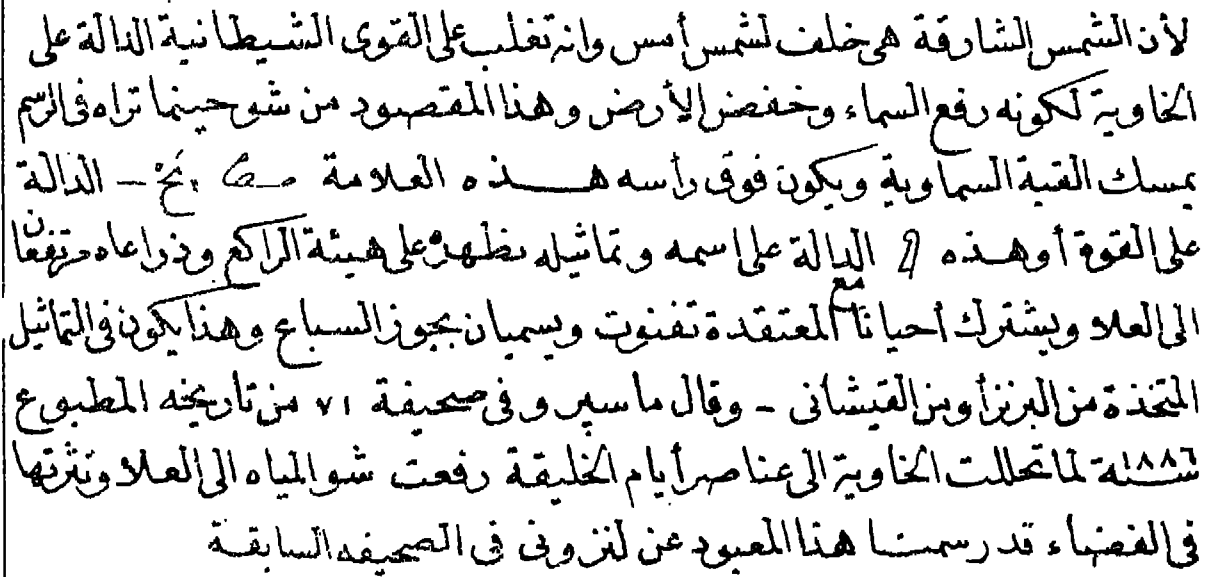 لأن الشمس الشارقة هى خلف لشمس أمس وانه تغلب على القوى الشيطانية الدالة على
الخاوية لكونه رفع السماء وخفض الأرض وهذا المقصود من شو حينما تراه فى الرسم
يمسك القبة السماوية ويكون فوق رأسه هذه العلامة نخ – الدالة
على القوة أو هذه الدالة على اسمه وتماثيله تظهره على هيئة الراكع وذراعاه مرتفعان
الى العلا ويشترك أحيانا مع المعتقدة تفنوت ويسميان بجوز السباع وهذا يكون فى التماثيل
المتخذة من البرنز أو من القيشانى - وقال ماسپرو فى صحيفة ٧١ من تاريخه المطبوع
سنة ١٨٨٦ لما تحللت الخاوية الى عناصر أيام الخليقة رفعت شو المياه الى العلا ونثرتها
فى الفضاء قد رسمنا هذا المعبود عن لنزونى فى الصحيفه السابقة